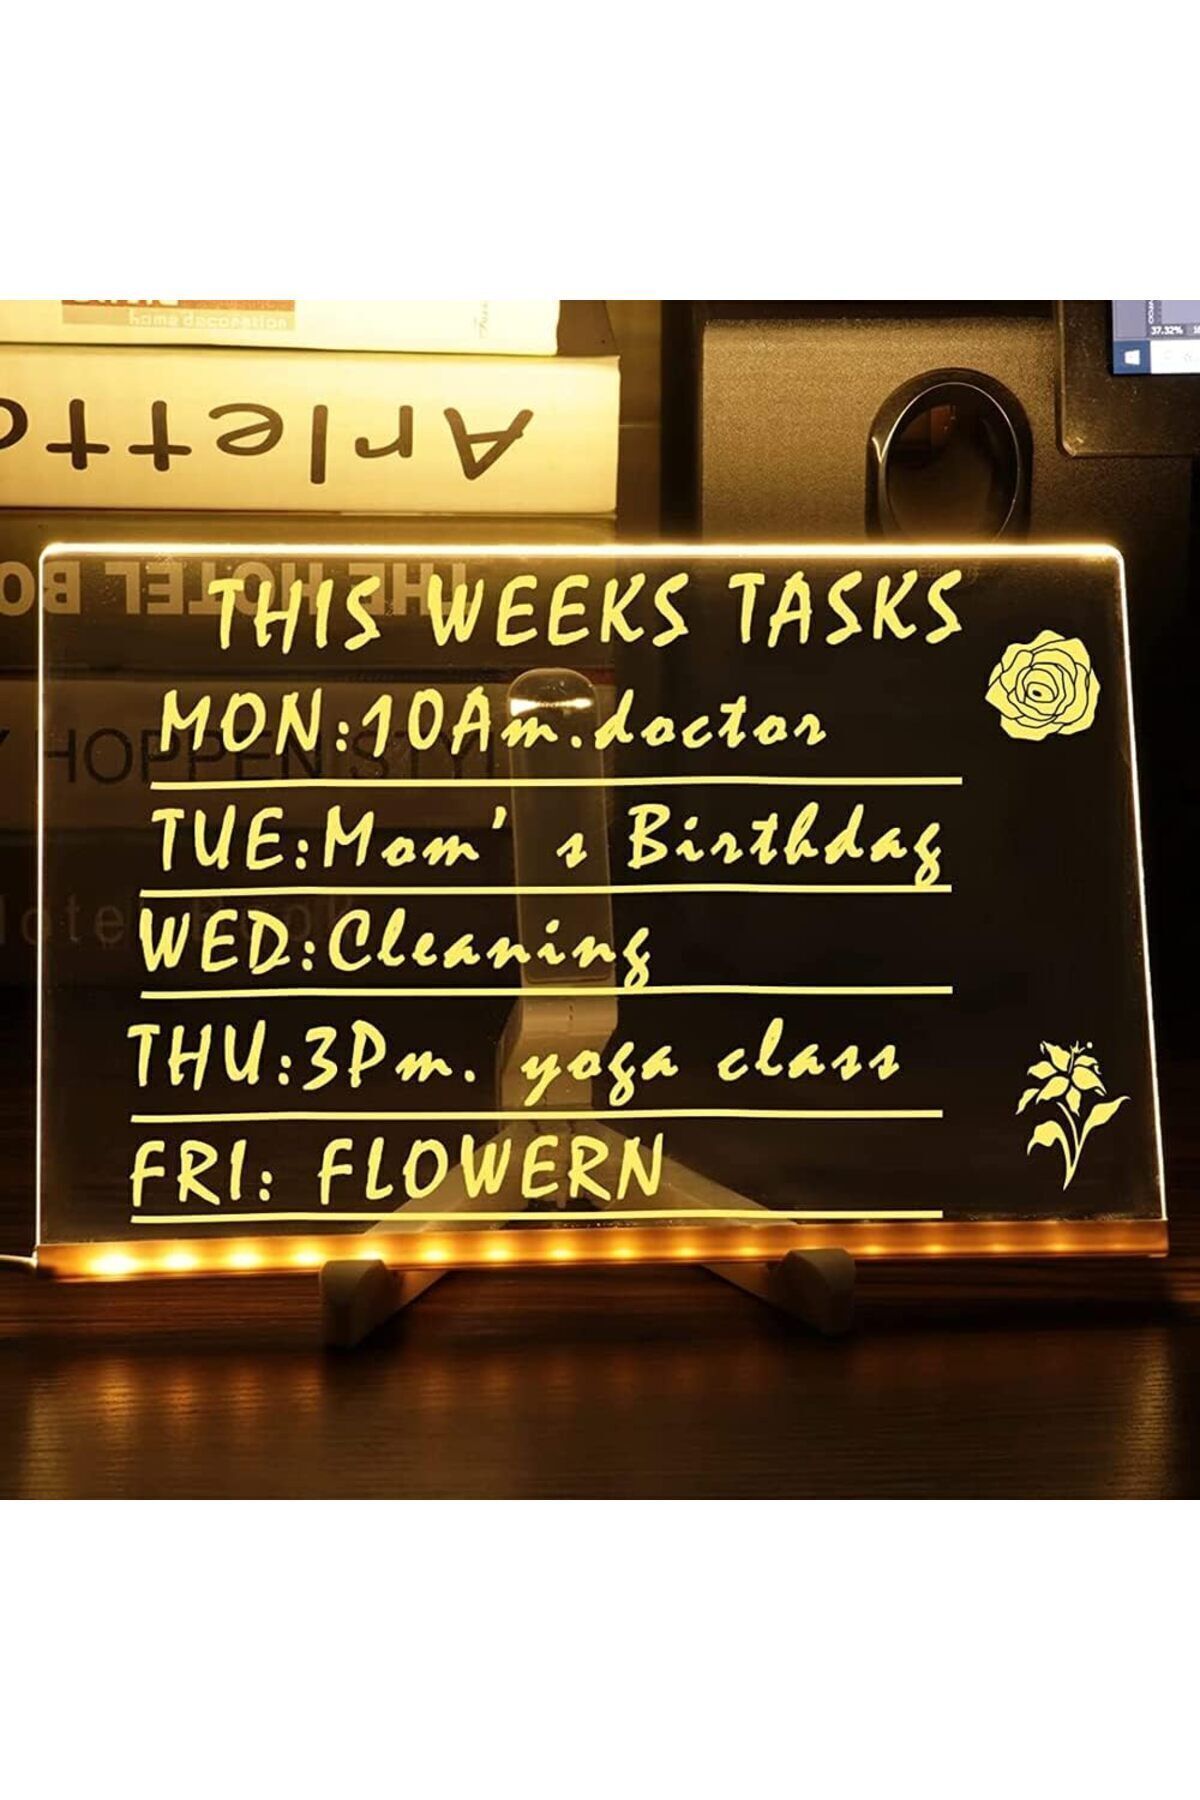 home decoration
Arletto
37.32%
THE HOTEL BO
THIS WEEKS TASKS
MON:10Am.doctor
HOPPEN STY
TUE:Mom's Birthday
WED:Cleaning
THU:3Pm. yoga class
FRI: FLOWERN